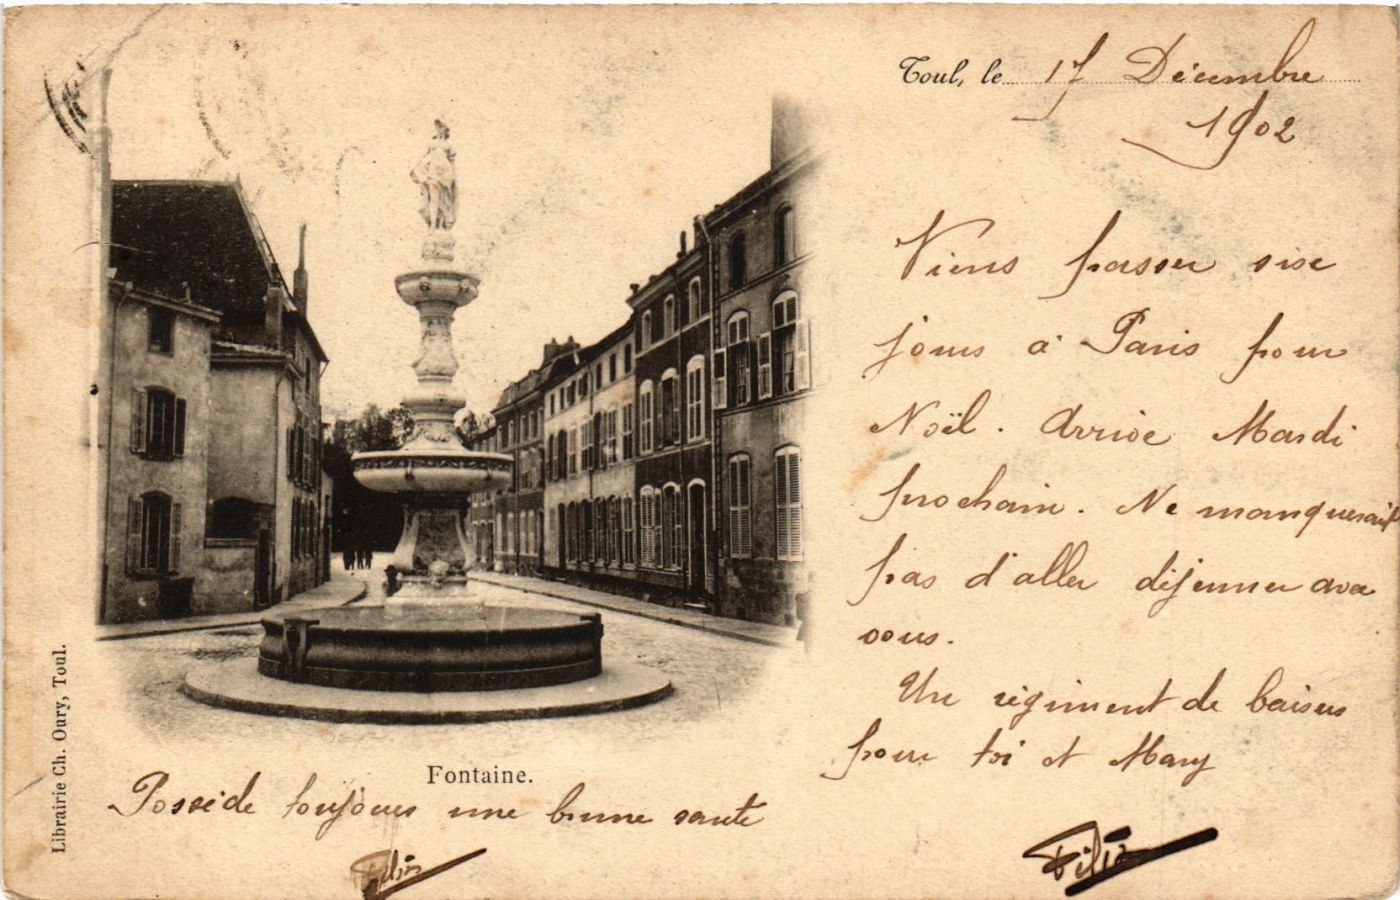 Toul, le 17 Décembre
1902
Viens passer sise
jours à Paris pour
Noël. Arrive Mardi
prochain. Ne manquerait
pas d'aller déjeuner avec
vous.
Un régiment de baisers
pour toi et Mary
Félix
Fontaine.
Possède toujours une bonne santé
Félix
Librairie Ch. Oury, Toul.